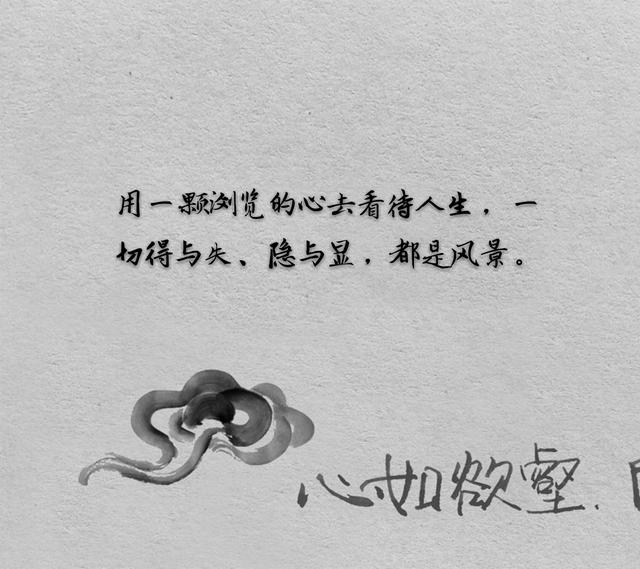 用一颗浏览的心去看待人生，一
切得与失、隐与显，都是风景。
心如欲壑.